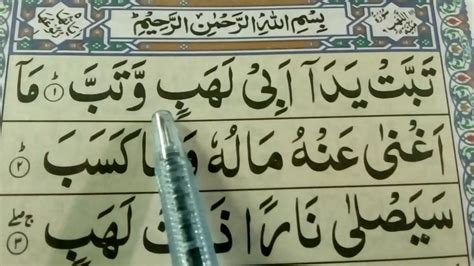 بِسْمِ اللهِ الرَّحْمٰنِ الرَّحِيْمِ
تَبَّتْ يَدَاۤ اَبِىْ لَهَبٍ وَّتَبَّ ؕ ۱ مَاۤ
اَغْنٰى عَنْهُ مَالُهٗ كَسَبَ ؕ ۲
سَيَصْلٰى نَارًا لَهَبٍ ۚ ۳